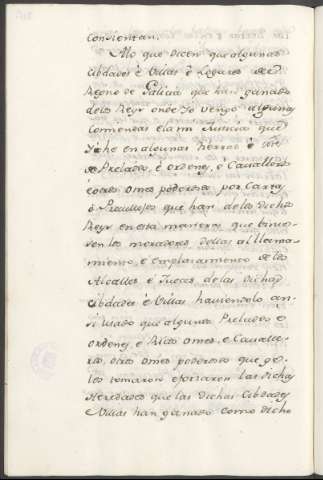 Consientan.
Alo que dicen que algunas
Cibdades è Villas è Logares de el
Regno de Galicia que han ganado
delos Reyes onde Yo vengo algunas
Comendas e la mi Justicia que
Yo he en algunas tierras è
Prelados, è ordenes, è Cavalleros
è otros omes poderosos por Cartas
ò Privillejos que han de los dichos
Reyes en esta manera que
los moradores dellas al llama-
miento, è emplazamiento de los
Alcalles è Jueces de las dichas
Cibdades è Villas haviendolo an-
si usado que algunos Prelados è
ordenes, è Ricos omes, è Cavalle-
ros, otros omes poderosos que ge-
los tomaron è forzaron las dichas
Heredades que las dichas Cibdades
è Villas han ganado como dicho